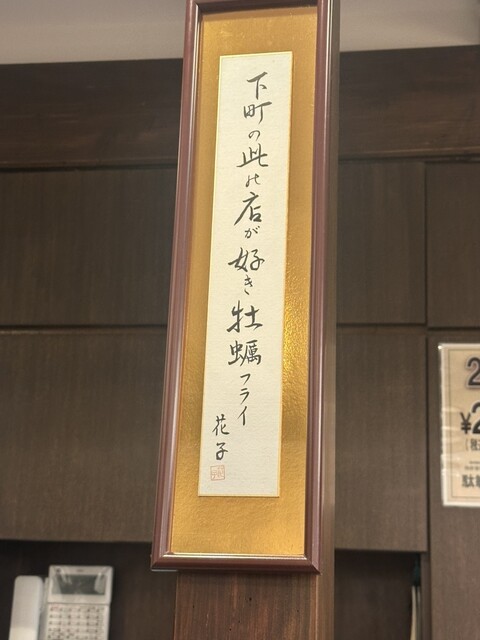 下町の此の店が好き牡蠣フライ
花子
2
¥2